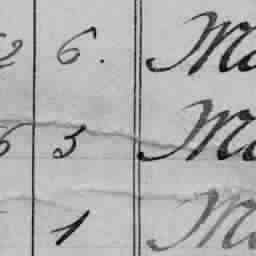 2 6. Ma
6 3 Ma
1 Ma